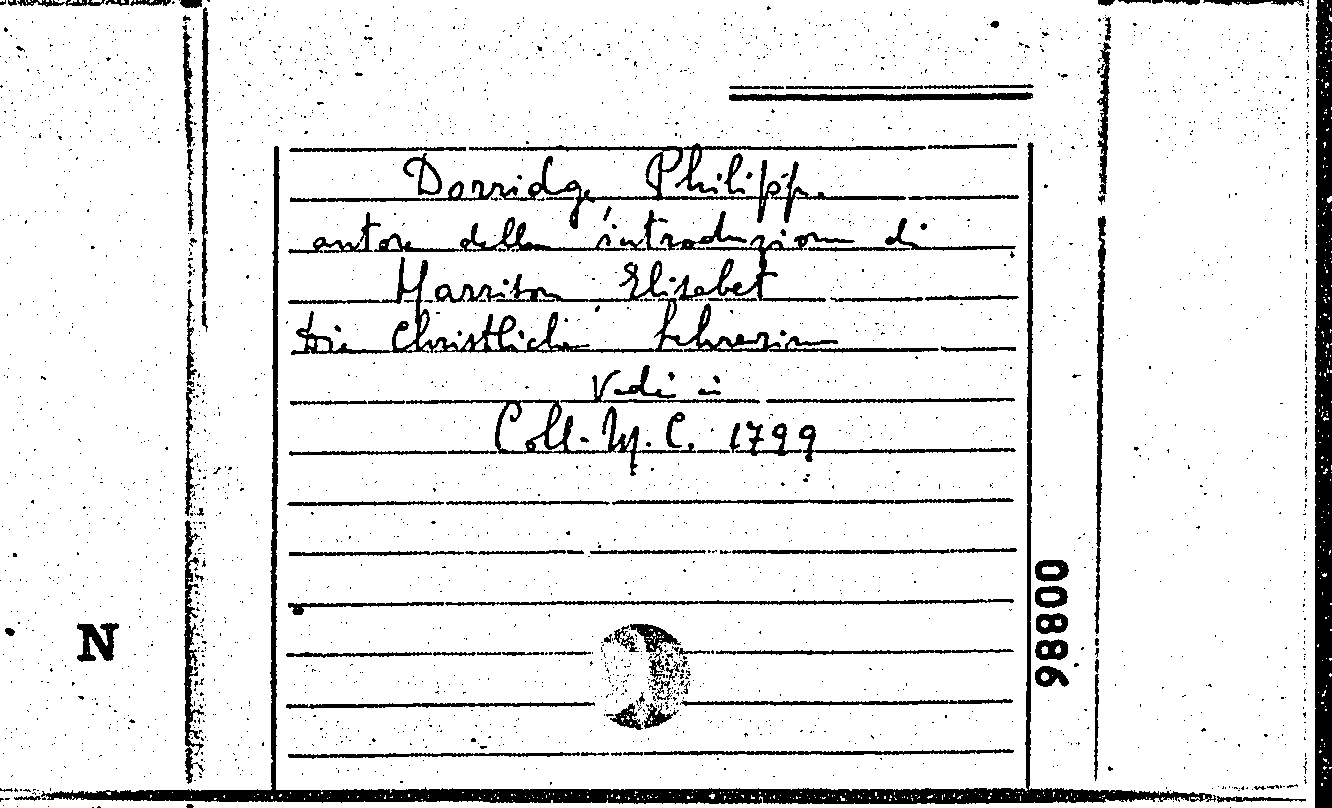 Dorridge Philipp.
autore della introduzione di
Harrison Elisabet
Die Christliche Lehrerin
Vedi in
Coll. M. C. 1799
00886
N